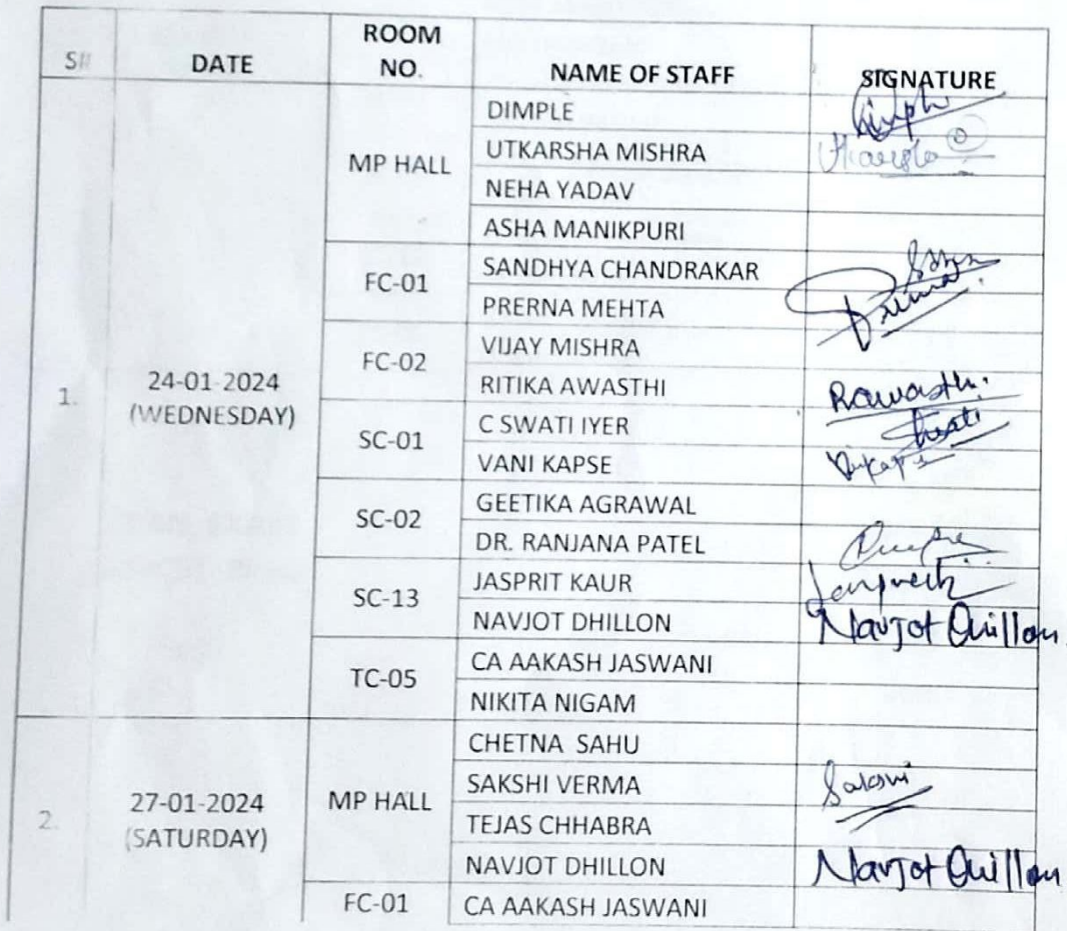 S# DATE ROOM NO. NAME OF STAFF SIGNATURE
1. 24-01-2024 (WEDNESDAY) MP HALL DIMPLE Dimple
UTKARSHA MISHRA Utkarsha
NEHA YADAV
ASHA MANIKPURI
FC-01 SANDHYA CHANDRAKAR
PRERNA MEHTA Prerna
FC-02 VIJAY MISHRA
RITIKA AWASTHI Rawasthi.
SC-01 C SWATI IYER Swati
VANI KAPSE
SC-02 GEETIKA AGRAWAL
DR. RANJANA PATEL
SC-13 JASPRIT KAUR
NAVJOT DHILLON Navjot Dhillon
TC-05 CA AAKASH JASWANI
NIKITA NIGAM
2. 27-01-2024 (SATURDAY) MP HALL CHETNA SAHU
SAKSHI VERMA Sakshi
TEJAS CHHABRA
NAVJOT DHILLON Navjot Dhillon
FC-01 CA AAKASH JASWANI